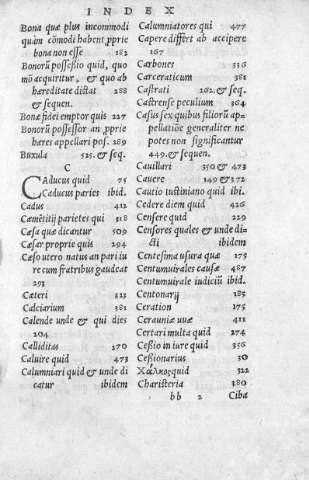 INDEX
Bona quæ plus incommodi
quàm cōmodi habent, pprie
bona non esse 182
Bonorū possessio quid, quo
mō acquiritur, & quo ab
hæreditate distat 288
& sequen.
Bonæ fidei emptor quis 227
Bonorū possessor an pprie
hæres appellari pos. 289
Buxula 525. & seq.
C
CAducus quid 75
Caducus paries ibid.
Cadus 412
Cæmētitij parietes qui 318
Cæsa quæ dicantur 509
Cæsar proprie quis 294
Cæso utero natus an pari iu
re cum fratribus gaudeat
293
Cæteri 323
Calciarium 381
Calende unde & qui dies
204
Calliditas 270
Caluire quid 473
Calumniari quid & unde di
catur ibidem
Calumniatores qui 477
Capere differt ab accipere
167
Carbones 336
Carceraticum 382
Castrati 262. & seq.
Castrense peculium 364
Casus sex quibus filiorū ap=
pellatiōe generaliter ne
potes non significantur
449. & sequen.
Cauillari 350 & 473
Cauere 149 & 172
Cautio iustiniano quid ibi.
Cedere diem quid 426
Censere quid 229
Censores quales & unde di=
cti ibidem
Centesima usura quæ 175
Centumuirales causæ 487
Centumuirale iudiciū ibid.
Centonarij 185
Ceration 175
Cerauniæ uuæ 411
Certari multa quid 274
Cessio in iure quid 356
Cessionarius 30
Χαλκος quid 322
Charisteria 380
bb 2 Ciba